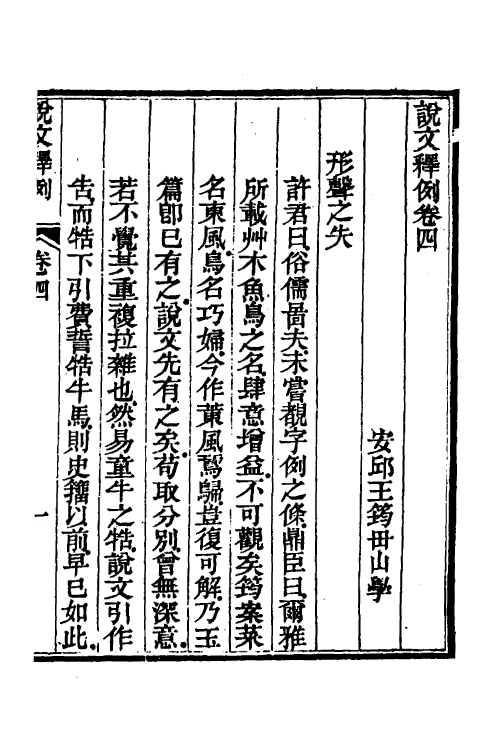 說文釋例卷四
安邱王筠毌山學
形聲之失
許君曰俗儒啚夫未嘗覩字例之條鼎臣曰爾雅
所載艸木魚鳥之名肆意增益不可觀矣筠案萊
名東風鳥名巧婦今作菄風鴱歸豈復可解乃玉
篇卽已有之說文先有之矣苟取分別曾無深意
若不覺其重複拉雜也然易童牛之牿說文引作
告而牿下引費誓牿牛馬則史籒以前早已如此
說文釋例
卷四
一